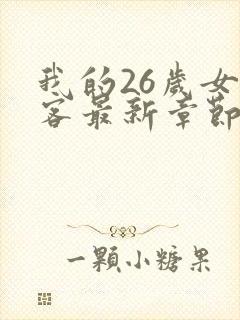 我的26歲女
客最新章節
一顆小糖果